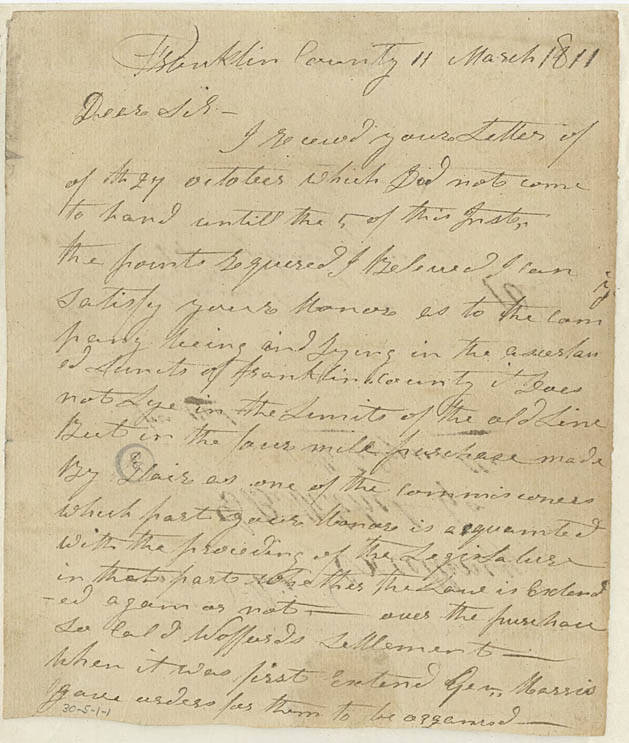 Franklin County 11 March 1811
Dear Sir –
I receivd your Letter of
of th 27 october which Did not come
to hand untill the 5, of this Inst,
the points Required I Beleived I can
satisfy your Honor as to the com
pany being and Lying in the
ed Limits of franklin County it Does
not Lye in the Limits of the old Line
But in the four mile purchase made
By Blair as one of the commisioners
which part your Honor is acquainted
with the proceding of the Legislature
in that part whether the Law is Extend
-ed again or not — over the purchase
so Cald Woffords settlement —
when it was first Extend Gen,, Harris
gave orders for them to be organisd —
30-5-1-1